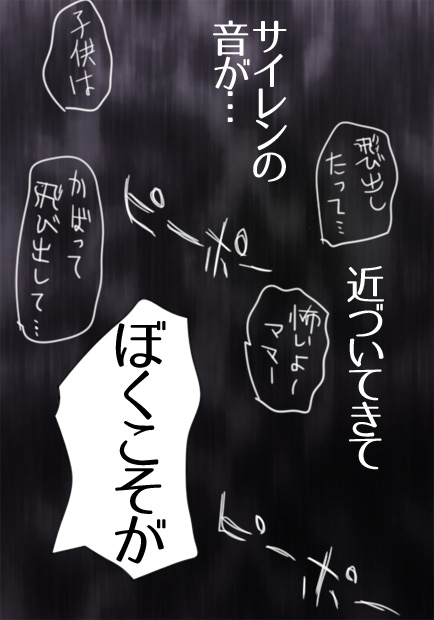 サイレンの
音が…
子供は
飛び出し
たって…
ピーポー
かばって
飛び出して…
近づいてきて
怖いよー
ママー
ぼくこそが
ピーポー